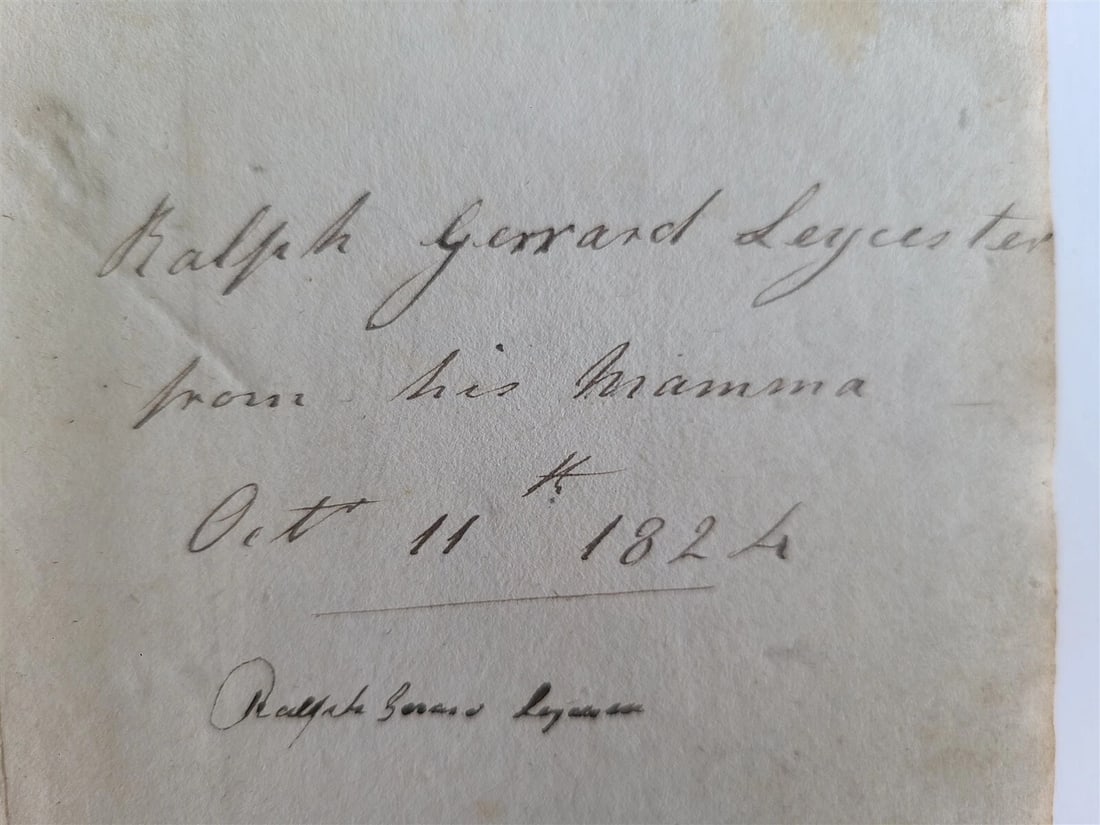 Ralph Gerrard Leycester
from his Mamma
Octr 11th 1824
Ralph Gerard Leycester